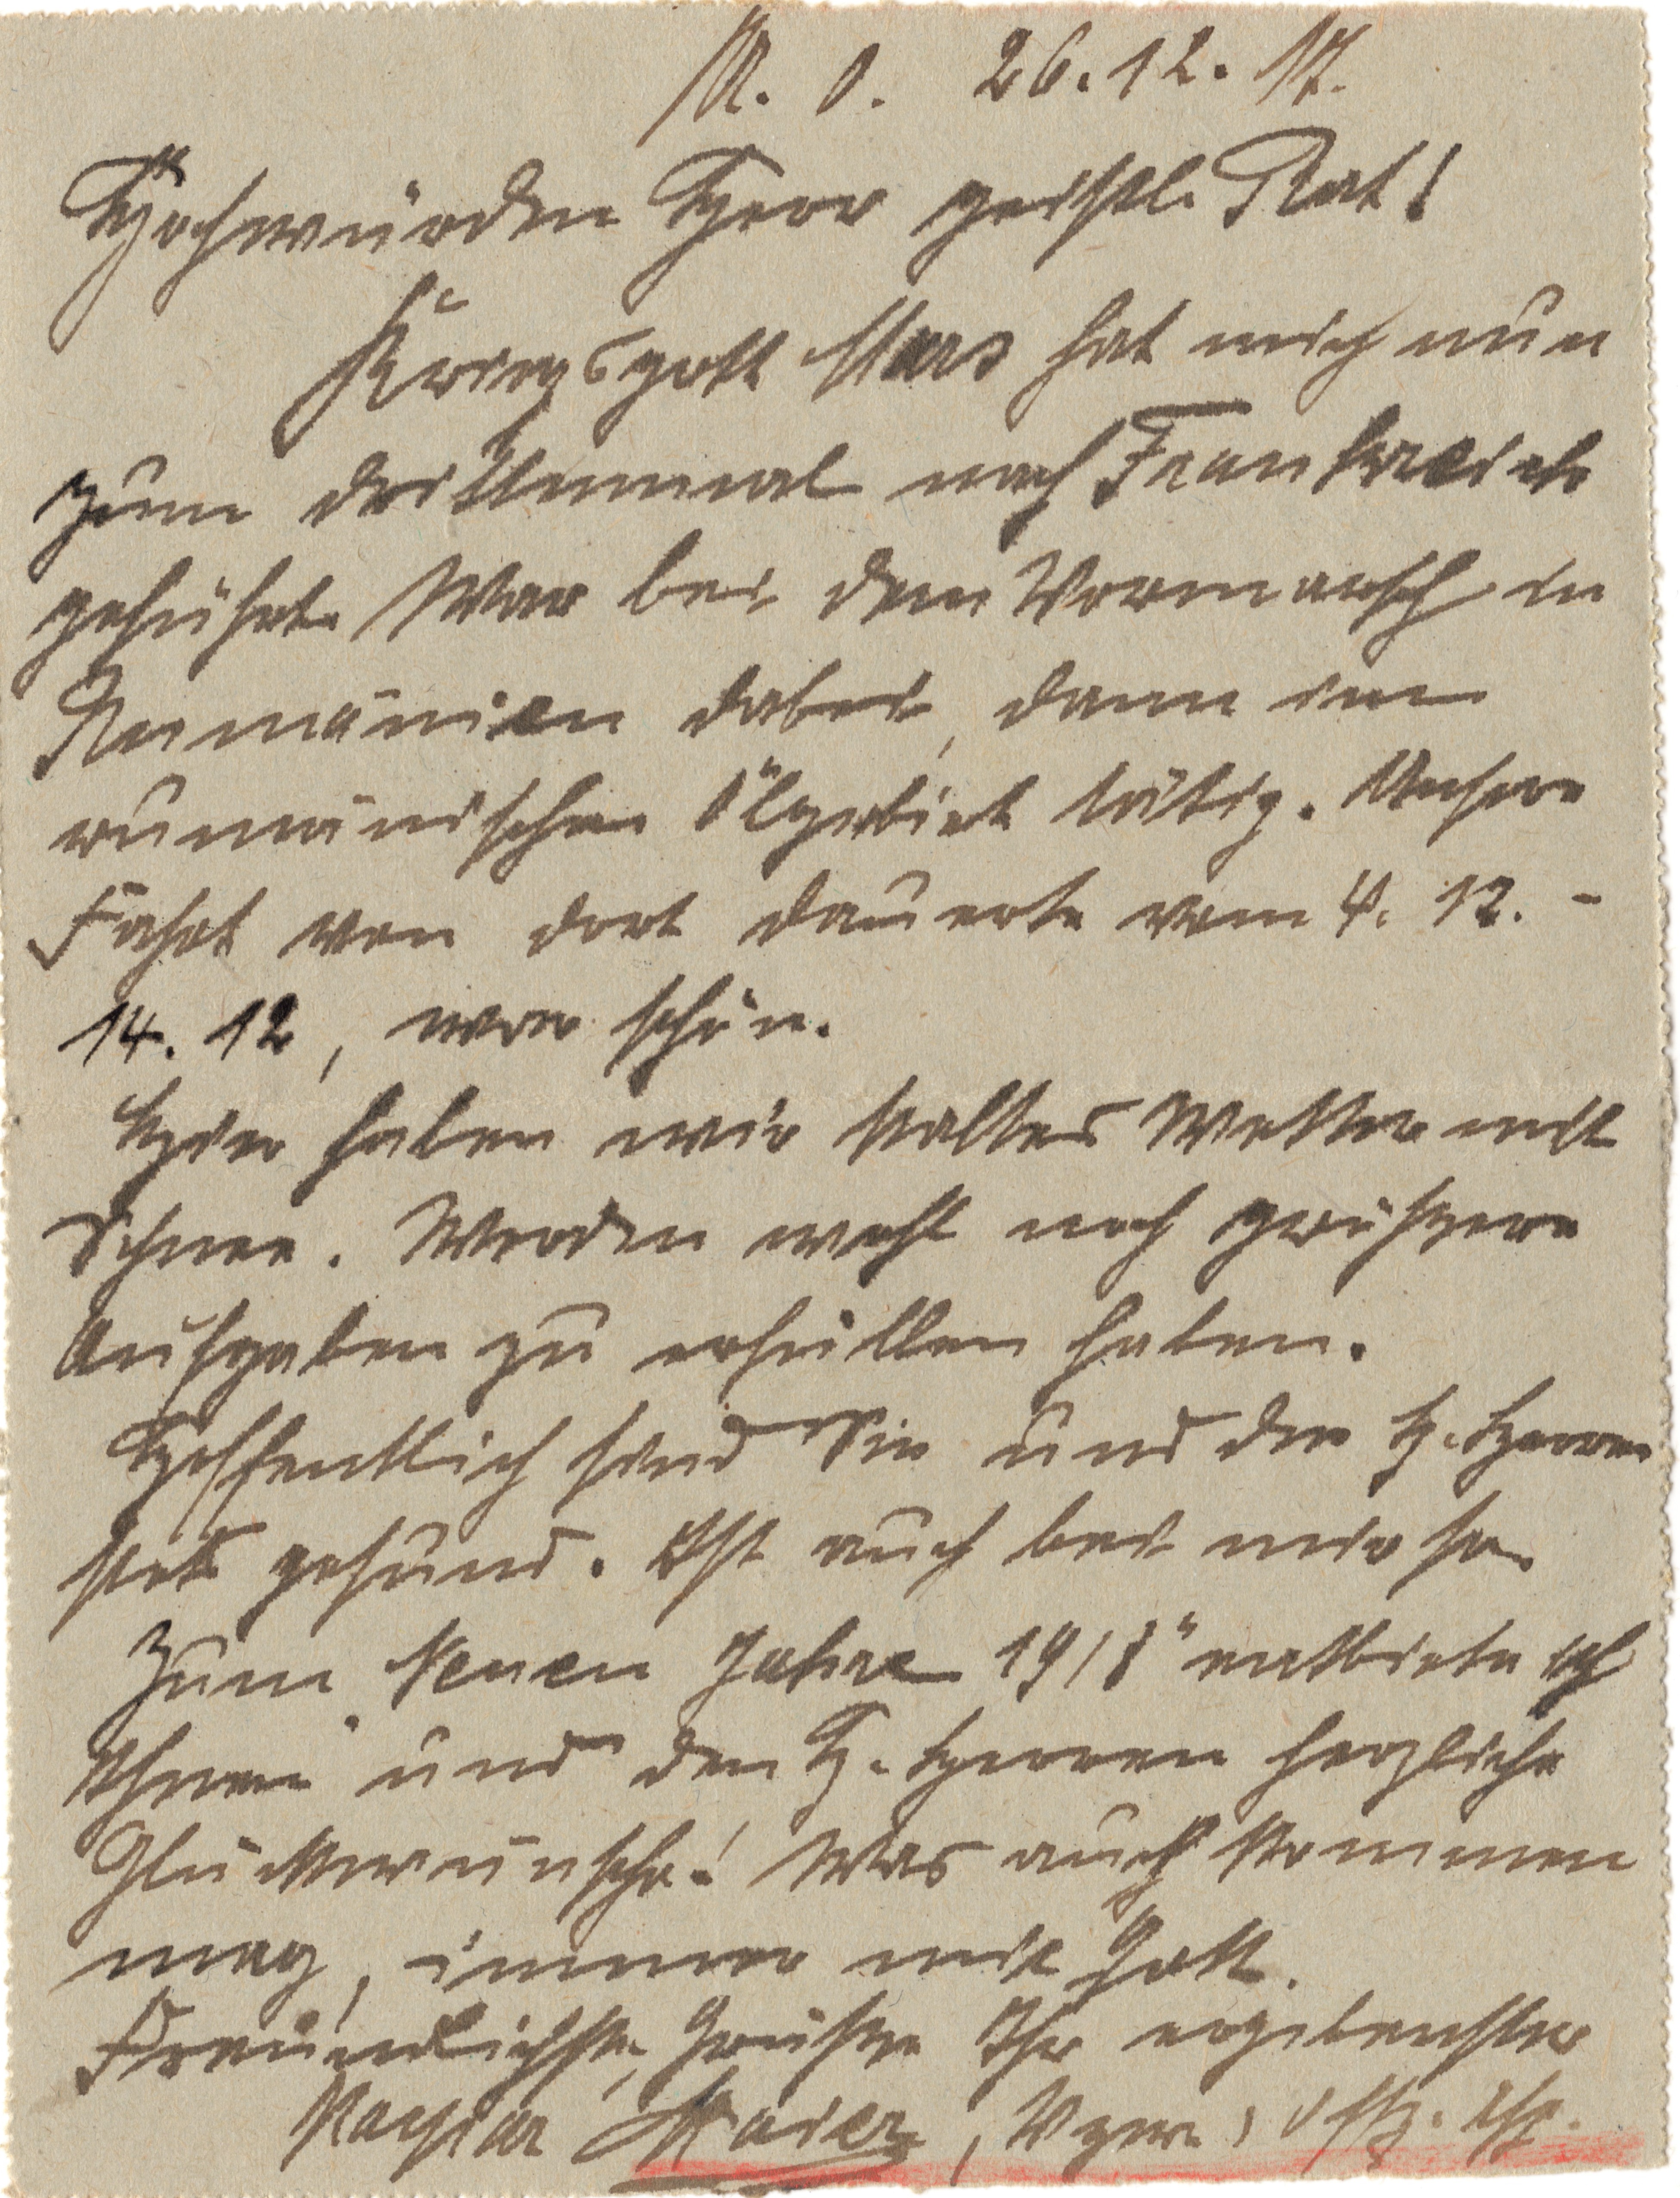 N. O. 26.12.17.
Hochwürden Herr geistl. Rat!
Kriegsgott Mars hat mich nun
zum drittenmal nach Frankreich
geführt. War bei dem Vormarsch in
Rumänien dabei, dann im
rumänischen Ölgebiet tätig. Unsere
Fahrt von dort dauerte vom 4. 12. -
14. 12, war schön.
Hier haben wir kaltes Wetter mit
Schnee. Werden wohl noch größere
Aufgaben zu erfüllen haben.
Hoffentlich sind Sie und die H. Herren
stets gesund. Ist auch bei mir so.
Zum "Neuen Jahre 1918" entbiete ich
Ihnen und den H. Herren herzliche
Glückwünsche! Was auch kommen
mag, immer mit Gott.
Freundlichste Grüße Ihr ergebenster
Maier, Vzw. Offz. Asp.